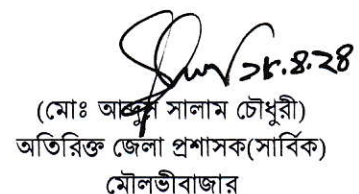 ২৮.৪.২৪
(মোঃ আব্দুস সালাম চৌধুরী)
অতিরিক্ত জেলা প্রশাসক(সার্বিক)
মৌলভীবাজার